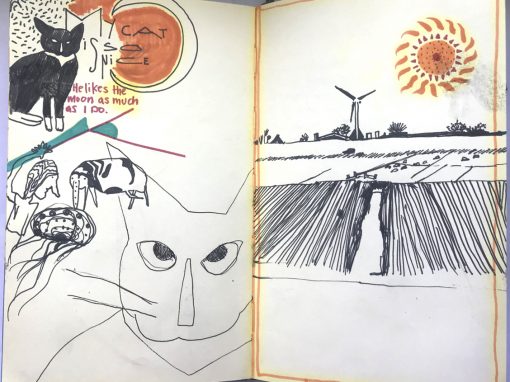 MY CAT
is so
NICE
He likes the
moon as much
as I do.